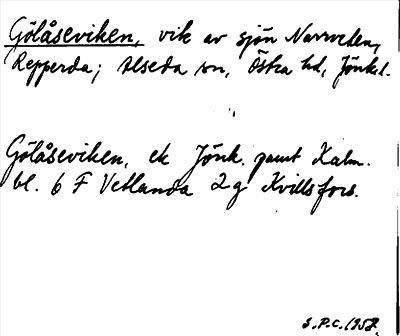 Gölåseviken, vik av sjön Narrveten,
Repperda; Alseda sn, Östra hd, Jönk.l.
Gölåseviken, ek Jönk. samt Kalm.
bl. 6 F Vetlanda 2g Kvillsfors.
S.P.C. 1958.